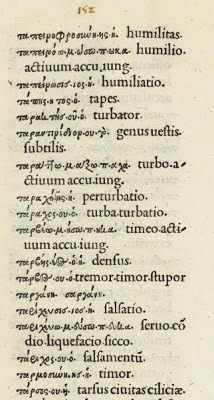 152
ταπεινοφροσύνη.ης.ἡ humilitas.
ταπεινόω.μ.ώσω.π.ωκα. humilio.
actiuum accu.iung.
ταπείνωσις.ιος.ἡ humiliatio.
τάπης.ητος.ὁ tapes.
ταρακτής.οῦ.ὁ turbator.
ταραντινίδιον.ου.τό genus uestis
subtilis.
ταράττω.μ.άξω.π.αχα turbo.a-
ctiuum accu.iung.
ταραχή.ῆς.ἡ perturbatio.
τάραχος.ου.ὁ turba.turbatio.
ταρβέω.μ.ήσω.π.ηκα timeo.acti-
uum accu.iung.
densus.
tremor.timor.stupor
ταργάνη σαργάνη.
ταρίχευσις.ιος.ἡ salsatio.
ταριχεύω.μ.εύσω.π.ευκα seruo.cō
dio.liquefacio.sicco.
τάριχος.ου.ὁ salsamentū.
ταρμοσύνη.ης.ἡ timor.
ταρσός.οῦ.ἡ tarsus ciuitas ciliciæ.